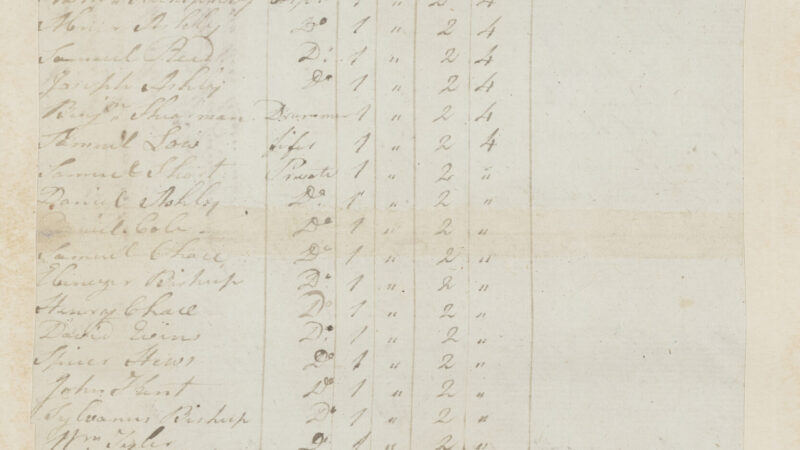 2 4
Ashley Do 1 " 2 4
Samuel Reed Do 1 " 2 4
Joseph Ashley Do 1 " 2 4
Benjn Shearman Drummer 1 " 2 4
Samuel Low fifer 1 " 2 4
Samuel Short Private 1 " 2 "
Daniel Ashley Do 1 " 2 "
Cole Do 1 " 2 "
Samuel Chace Do 1 " 2 "
Ebenezer Bishup Do 1 " 2 "
Henry Chace Do 1 " 2 "
David Do 1 " 2 "
Hews Do 1 " 2 "
John Do 1 " 2 "
Sylvanus Bishup Do 1 " 2 "
Wm Do 1 " 2 "